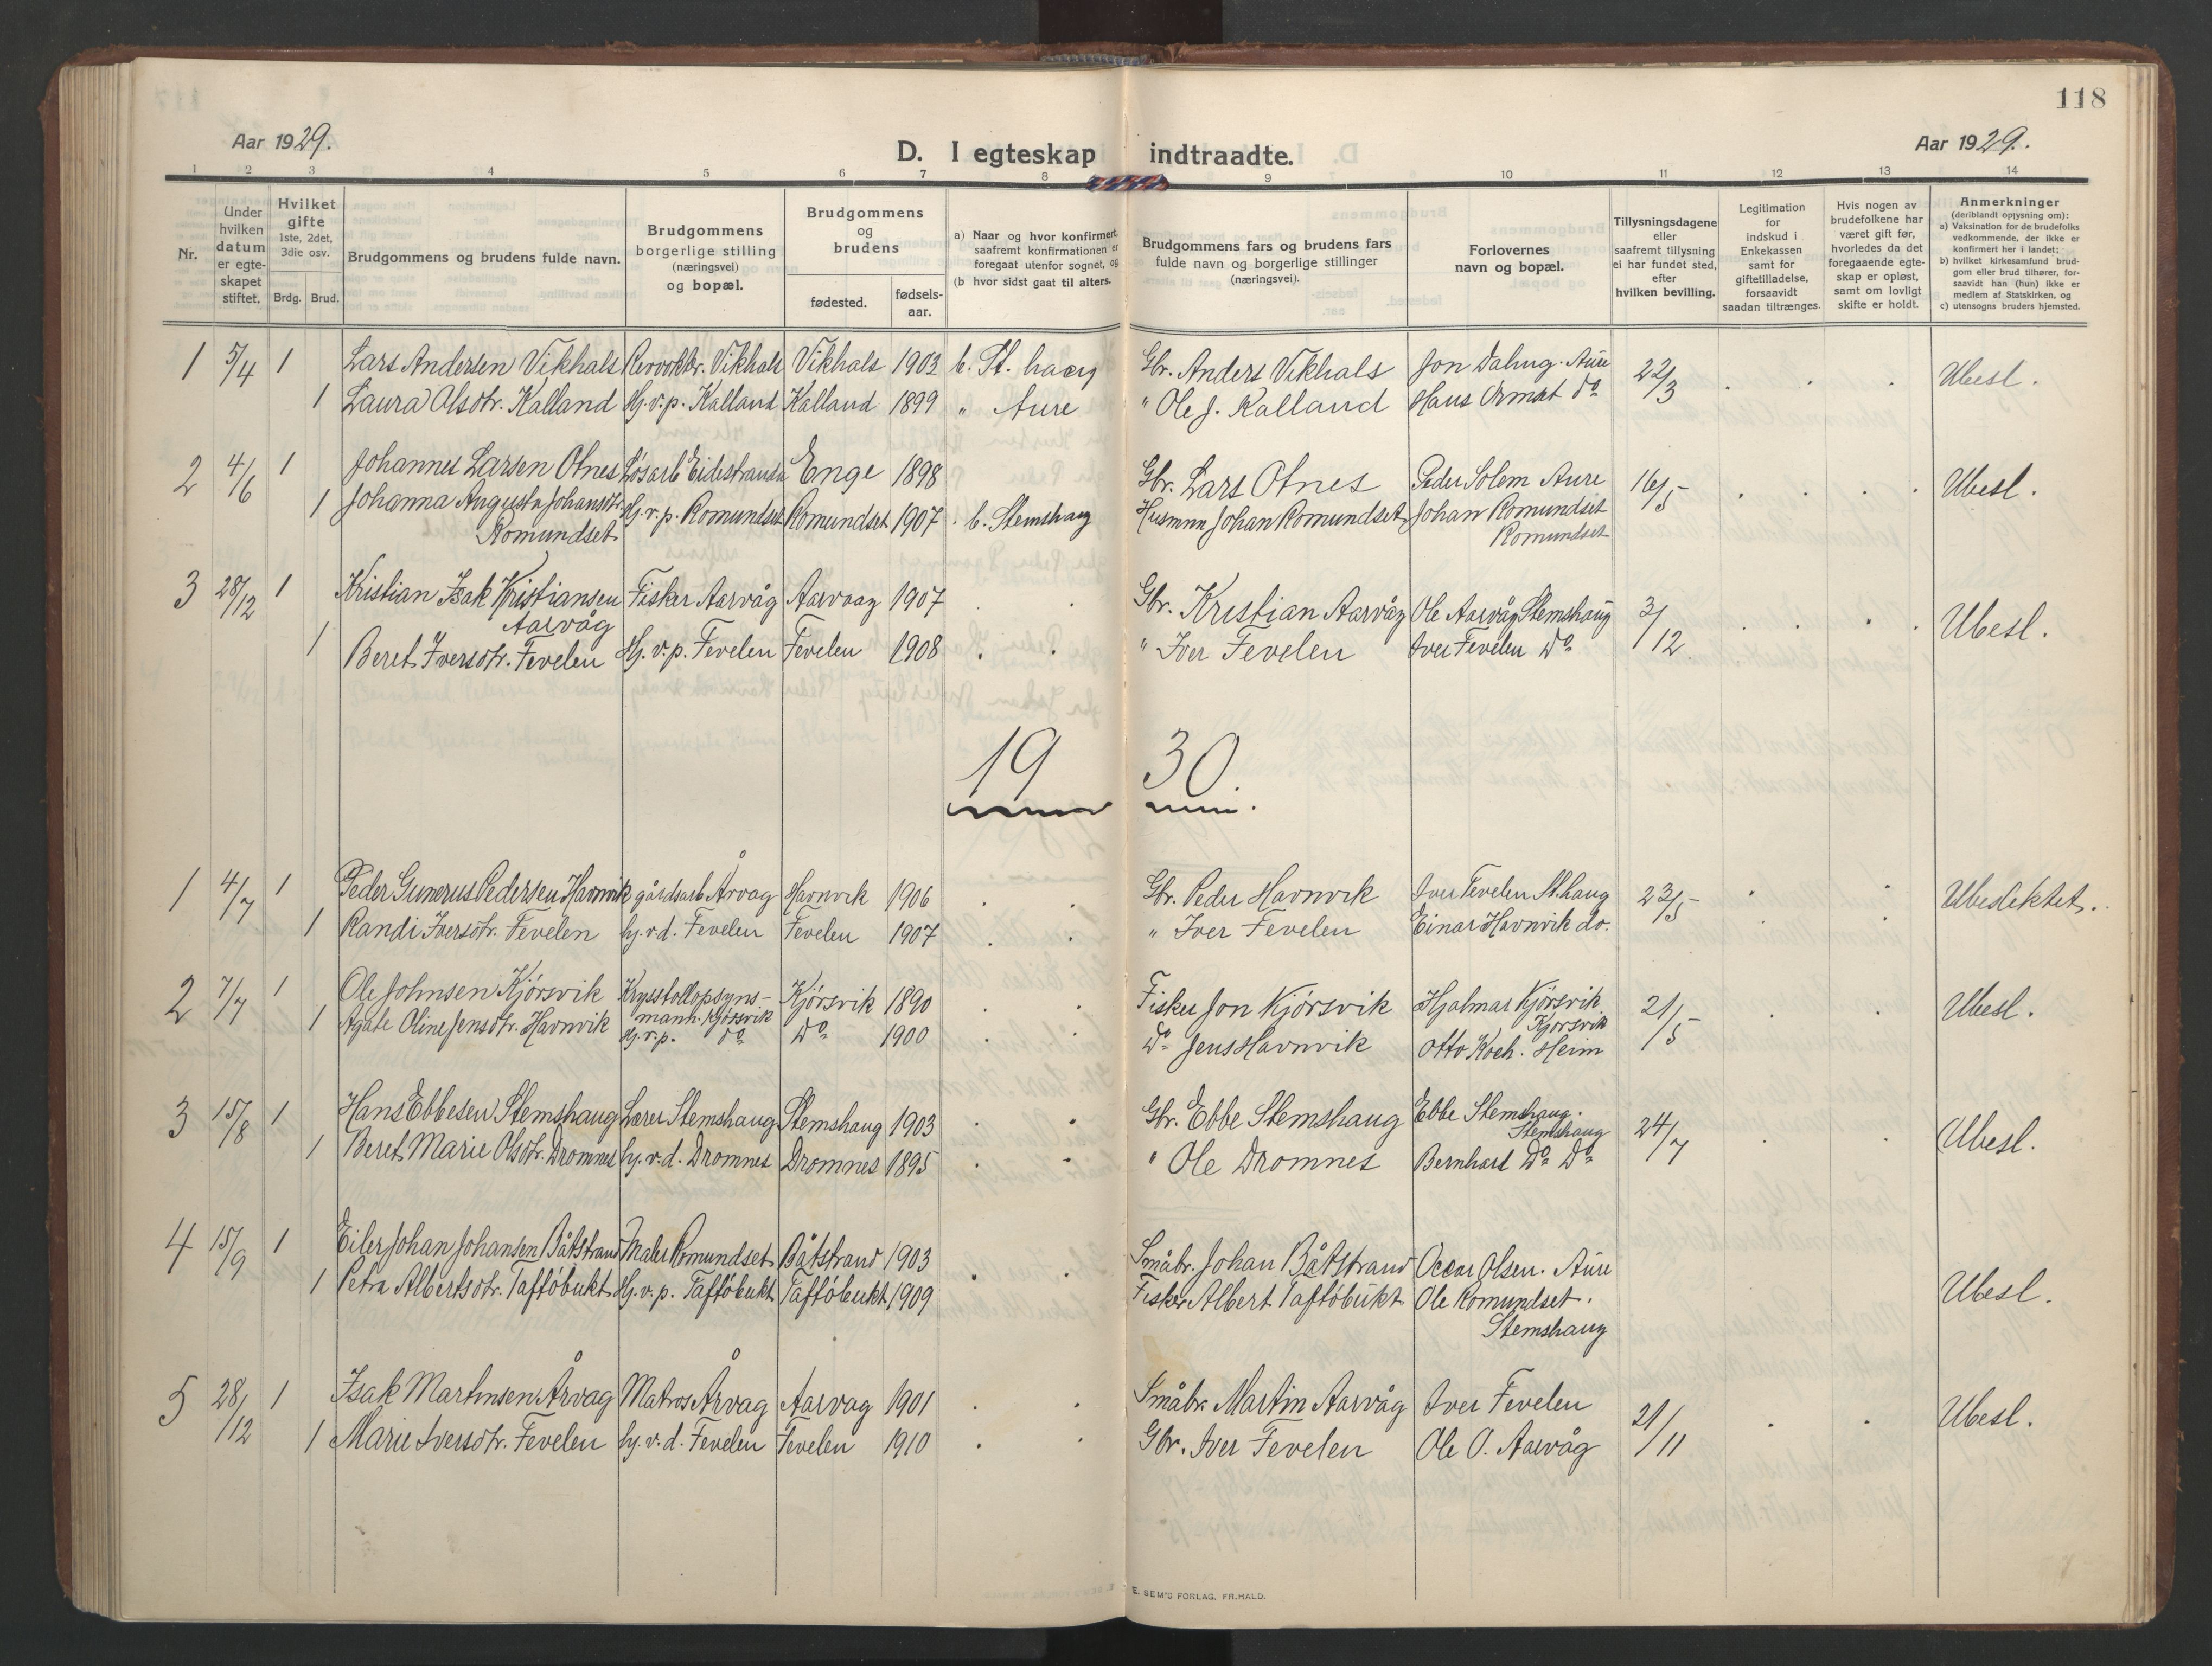 118
Aar 1929.
D. I egteskap indtraadte.
Aar 1929.
1 2 3 4 5 6 7 8 9 10 11 12 13 14
Nr.
Under hvilken datum er egteskapet stiftet.
Hvilket gifte 1ste, 2det, 3die osv.
Brdg. Brud.
Brudgommens og brudens fulde navn.
Brudgommens borgerlige stilling (næringsvei) og bopæl.
Brudgommens og brudens
fødested.
fødsels-aar.
a) Naar og hvor konfirmert, saafremt konfirmationen er foregaat utenfor sognet, og
(b hvor sidst gaat til alters.
Brudgommens fars og brudens fars fulde navn og borgerlige stillinger (næringsvei).
Forlovernes navn og bopæl.
Tillysningsdagene eller saafremt tillysning ei har fundet sted, efter hvilken bevilling.
Legitimation for indskud i Enkekassen samt for giftetilladelse, forsaavidt saadan tiltrænges.
Hvis nogen av brudefolkene har været gift før, hvorledes da det foregaaende egteskap er opløst, samt om lovligt skifte er holdt.
Anmerkninger
(deriblandt opjysning om):
a) Vaksination for de brudefolks vedkommende, der ikke er konfirmert her i landet;
b) hvilket kirkesamfund brudgom eller brud tilhører, forsaavidt han (hun) ikke er medlem af Statskirken, og
c) utensogns bruders hjemsted.
1 5/4 1 Lars Andersen Vikhals Vikhals Vikhals 1903 b. St. haug Gbr. Anders Vikhals Jon Dahug. Aure 22/3 Ubesl.
1 Laura Olsdtr. Kalland Hj.v.p. Kalland Kalland 1899 " Aure " Ole J. Kalland Hans Ormset do
2 4/6 1 Johannes Larsen Otnes Løsarb Eidestranda Enge 1898 Gbr. Lars Otnes Peder Solem Aure 16/5 Ubesl.
1 Johanna Augusta Johansdtr. Hj.v.p. Romundset Romundset 1907 b. Stemshaug Husmnn Johan Romundset Johan Romundset
Romundset Romundset
3 28/12 1 Kristian Isak Kristiansen Fisker Aarvåg Aarvaag 1907 Gbr. Kristian Aarvåg Ole Aarvåg Stemshaug 3/12 Ubesl.
Aarvåg
1 Beret Iversdtr. Fevelen Hj.v.p. Fevelen Fevelen 1908 " Iver Fevelen Iver Fevelen do
19 30
1 4/7 1 Peder Gunerus Pedersen Havnvik gårdsarb Årvag Havnvik 1906 Gbr. Peder Havnvik Iver Fevelen St.haug 23/5 Ubeslektet.
1 Randi Iversdtr. Fevelen hj.v.d. Fevelen Fevelen 1907 " Iver Fevelen Einar Havnvik do.
2 7/7 1 Ole Johnsen Kjørsvik Krysstollopsyns- Kjørsvik 1890 Fisker Jon Kjørsvik Hjalmar Kjørsvik 21/5 Ubesl.
manh. Kjørsvik Kjørsvik
1 Agate Oline Jensdtr. Havnvik Hj.v.p. do do 1900 do Jens Havnvik Otto Koch. Heim
3 15/8 1 Hans Ebbesen Stemshaug Lærer Stemshaug Stemshaug 1903 Gbr. Ebbe Stemshaug Ebbe Stemshaug. 24/7 Ubesl.
Stemshaug
1 Beret Marie Olsdtr. Dromnes hj.v.d. Dromnes Dromnes 1895 " Ole Dromnes Bernhard do do
4 15/9 1 Eiler Johan Johansen Båtstrand Maler Romundset Båtstrand 1903 Småbr. Johan Båtstrand Oscar Olsen. Aure
1 Petra Albertsdtr. Taftöbukt Hj.v.p. Taftöbukt Taftöbukt 1909 Fisker Albert Taftöbukt Ole Romundset. Ubesl.
Stemshaug
5 28/12 1 Isak Martinsen Årvag Matros Årvag Aarvag 1901 Småbr. Martin Aarvåg Iver Fevelen 21/11 Ubesl.
1 Marie Iversdtr. Fevelen hj.v.d. Fevelen Fevelen 1910 Gbr. Iver Fevelen Ole O. Aarvåg
E. SEM'S FORLAG, FR.HALD.